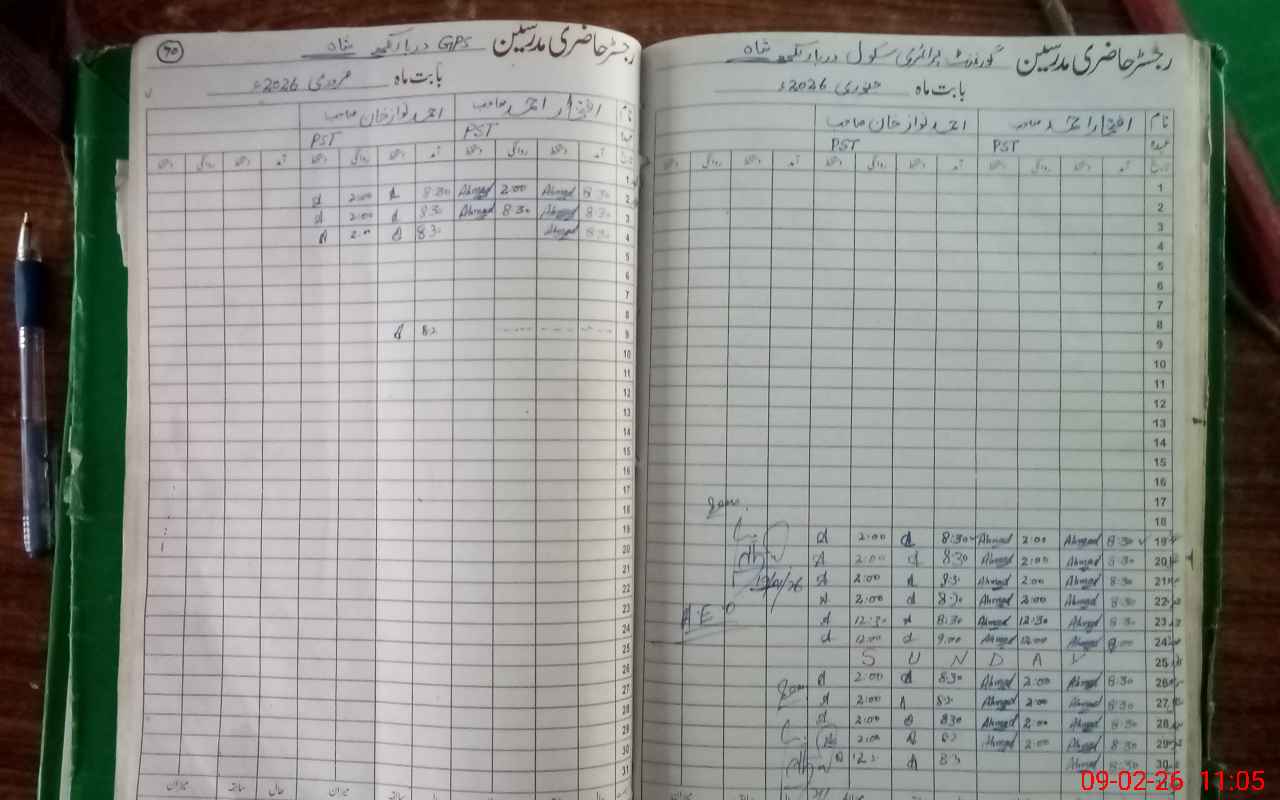 رجسٹر حاضری مدرسین گورنمنٹ پرائمری سکول دربار شاہ
بابت ماہ جنوری 2026ء
نام افتخار احمد صاحب احمد نواز خان صاحب
عہدہ PST PST
1
2
3
4
5
6
7
8
9
10
11
12
13
14
15
16
17
18
19 8:30 Ahmad 2:00 Ahmad 8:30 d 2:00 d
20 8:30 Ahmad 2:00 Ahmad 8:30 d 2:00 d
21 8:30 Ahmad 2:00 Ahmad 8:30 d 2:00 d
22 8:30 Ahmad 2:00 Ahmad 8:30 d 2:00 d
23 8:30 Ahmad 12:30 Ahmad 8:30 d 12:30 d
24 9:00 Ahmad 12:00 Ahmad 9:00 d 12:00 d
25 S U N D A Y
26 8:30 Ahmad 2:00 Ahmad 8:30 d 2:00 d
27 8:30 Ahmad 2:00 Ahmad 8:30 2:00 d
28 8:30 Ahmad 2:00 Ahmad 830 2:00 d
29 8:30 Ahmad 2:00 Ahmad 2:00
30 8:30 Ahmad
A.E.O
70
رجسٹر حاضری مدرسین GPS دربار شاہ
بابت ماہ فروری 2026ء
نام افتخار احمد صاحب احمد نواز خان صاحب
PST PST
1
2 8:30 Ahmad 2:00 Ahmad 8:30 d 2:00 d
3 8:30 Ahmad 8:30 Ahmad 8:30 d 2:00 d
4 8:30 Ahmad
5
6
7
8
9
10
11
12
13
14
15
16
17
18
19
20
21
22
23
24
25
26
27
28
29
30
31
میزان سابقہ حال میزان سابقہ حال
09-02-26 11:05